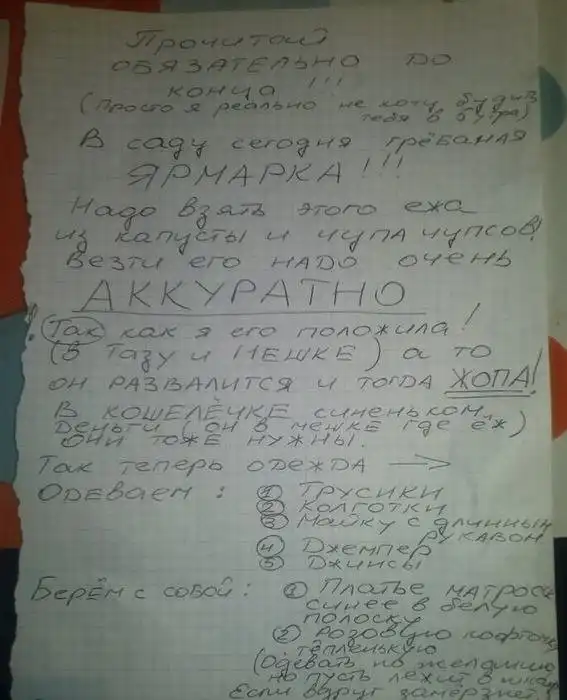 Прочитай
ОБЯЗАТЕЛЬНО ДО
конца !!!
(Просто я реально не хочу будить
тебя в 6 утра)
В саду сегодня грёбаная
ЯРМАРКА!!!
Надо взять этого ежа
из капусты и чупа чупсов!
Везти его НАДО очень
АККУРАТНО
! Так как я его положила!
(в тазу и МЕШКЕ) а то
он РАЗВАЛИТСЯ и тогда ЖОПА!
В КОШЕЛЁЧКЕ синеньком
деньги (он в мешке где ёж)
ОНИ ТОЖЕ НУЖНЫ.
Так теперь одежда →
Одеваем: ① Трусики
② Колготки
③ Майку с длинным
рукавом
④ Джемпер
⑤ Джинсы
Берём с собой: ① Платье матроса
синее в белую
полоску
② Розовую кофточку
тёпленькую
(Одевать по желанию
но пусть лежит в шкафу
Если вдруг замёрзнет)